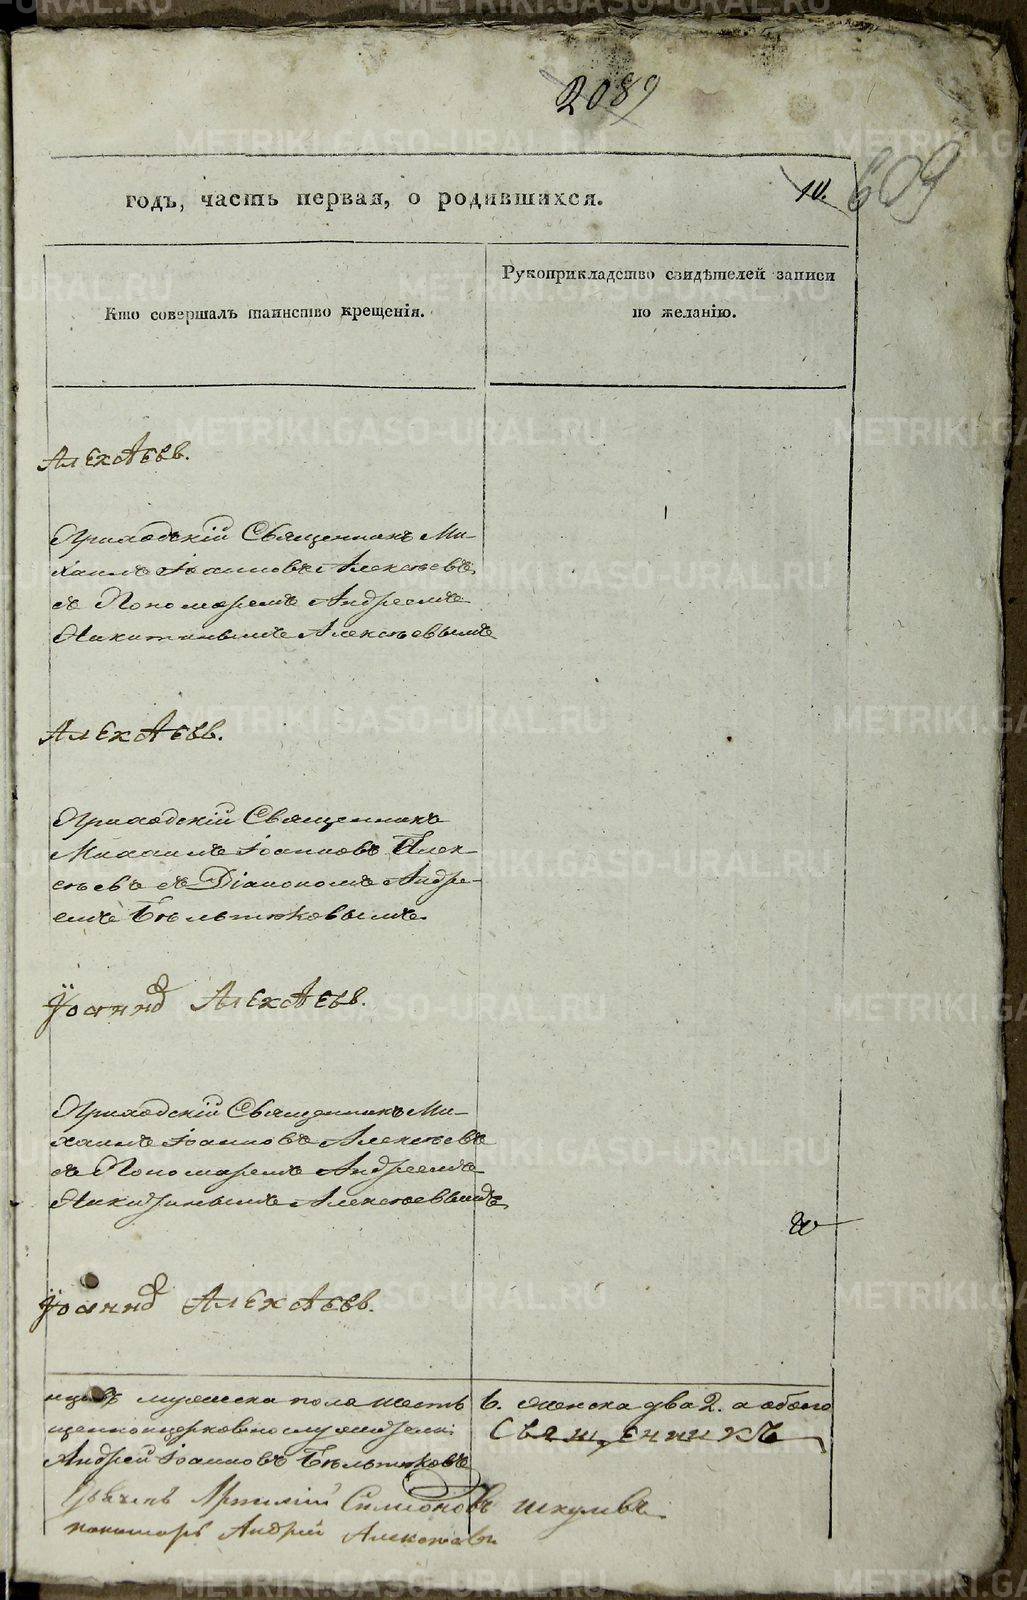 2089
609
годъ, часть первая, о родившихся.
10.
Кто совершалъ таинство крещенія.
Рукоприкладство свидѣтелей записи
по желанію.
Алексѣевъ.
Приходскій Священникъ Ми-
хаилъ Іоанновъ Алексѣевъ
съ Пономаремъ Андреемъ
Никитинымъ Алексѣевымъ
Алексѣевъ.
Приходскій Священникъ
Михаилъ Іоанновъ Алек-
сѣевъ съ Діакономъ Андре-
емъ Бѣльтюковымъ.
Іоаннъ Алексѣевъ.
Приходскій Священникъ Ми-
хаилъ Іоанновъ Алексѣевъ
съ Пономаремъ Андреемъ
Никитинымъ Алексѣевымъ
Іоаннъ Алексѣевъ.
мужеска пола шесть 6. женска два 2. а обоего
щенноцерковнослужители: Священникъ
Андрей Іоанновъ Бѣльтюковъ
Симеоновъ
пономарь Андрей Алексѣевъ
METRIKI.GASO-URAL.RU